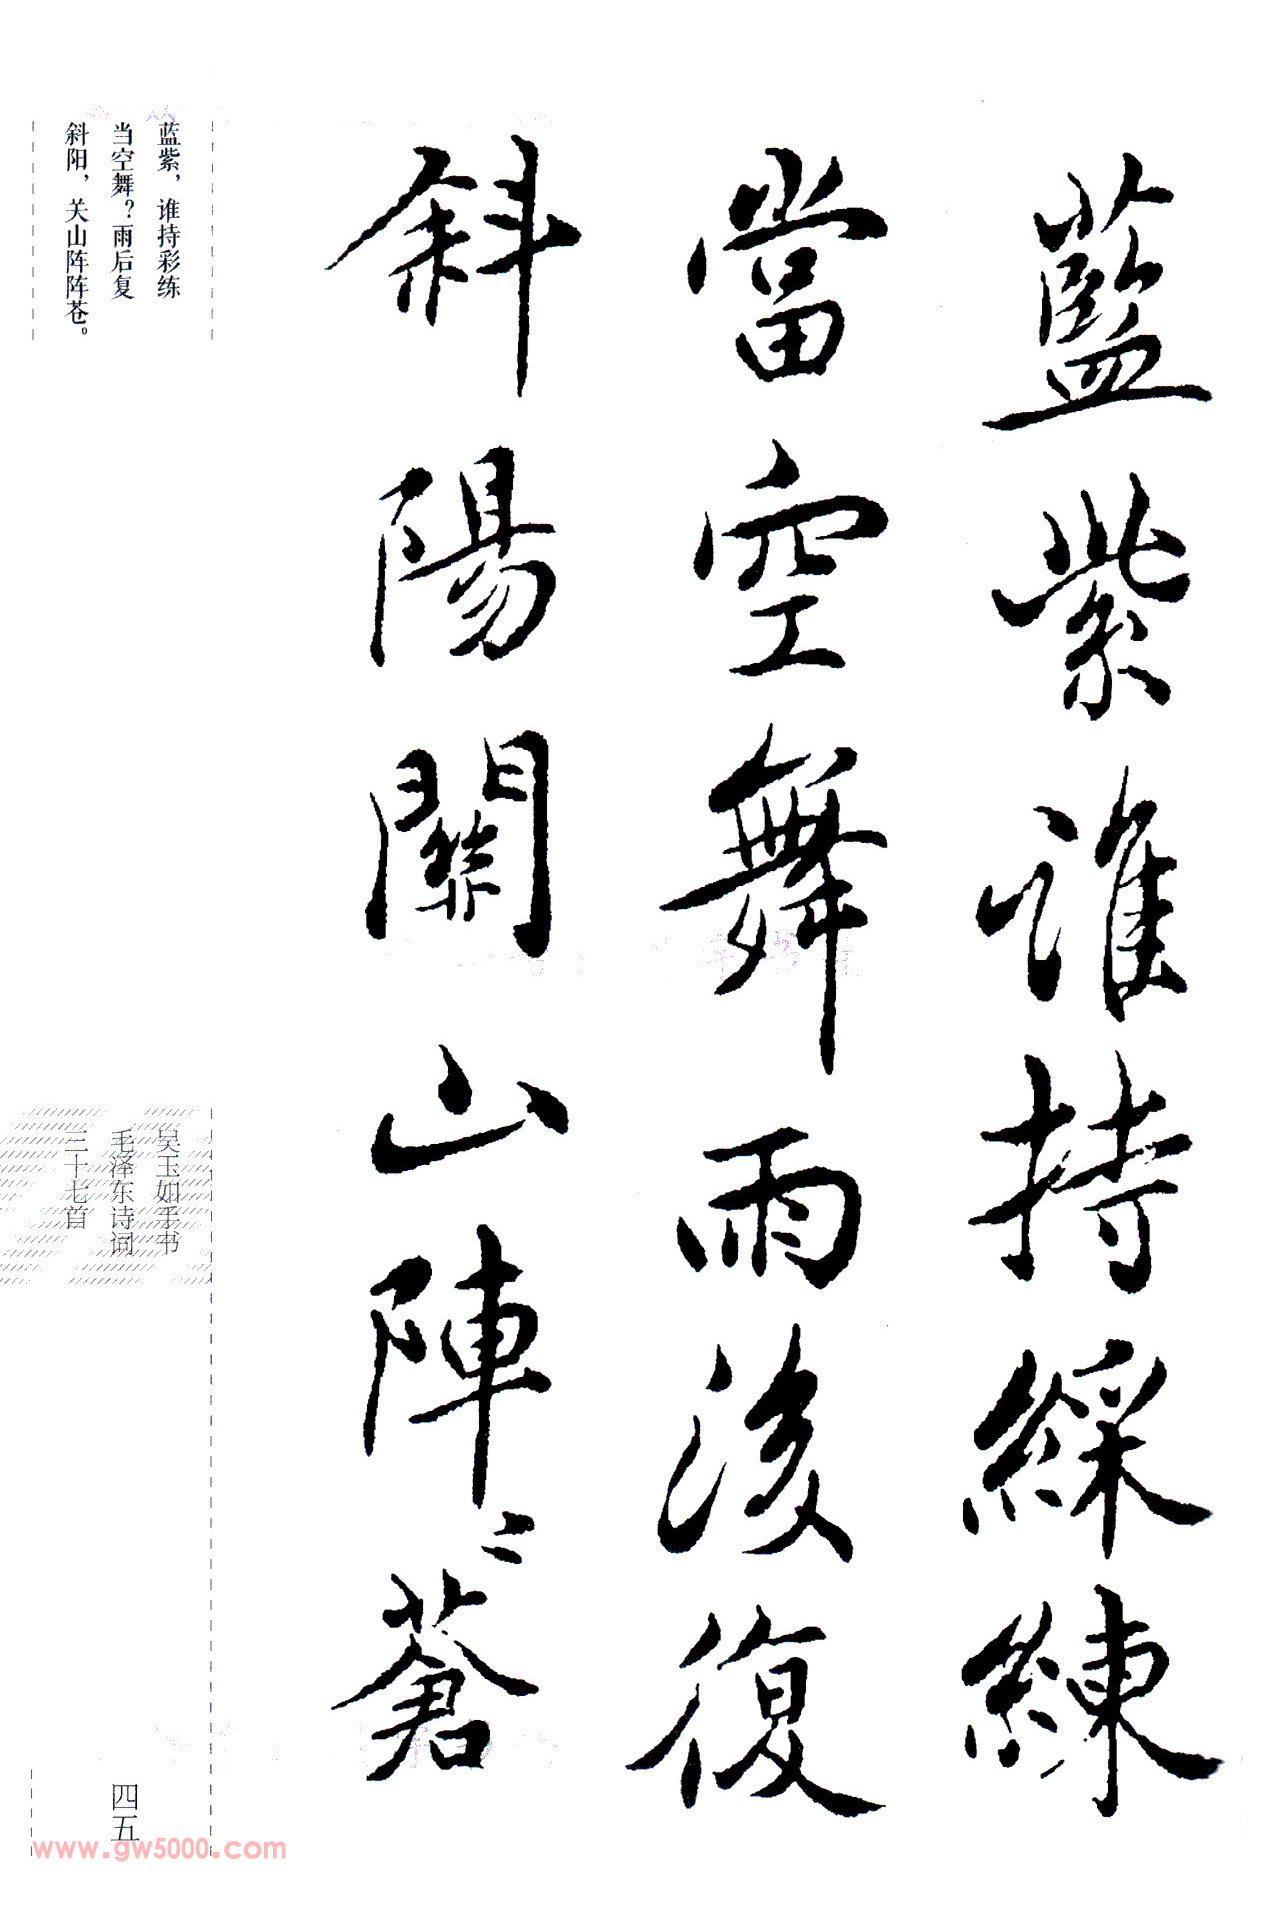 藍紫誰持綵練
當空舞雨後復
斜陽關山陣〻蒼
蓝紫，谁持彩练
当空舞？雨后复
斜阳，关山阵阵苍。
吴玉如手书
毛泽东诗词
三十七首
四五
www.gw5000.com